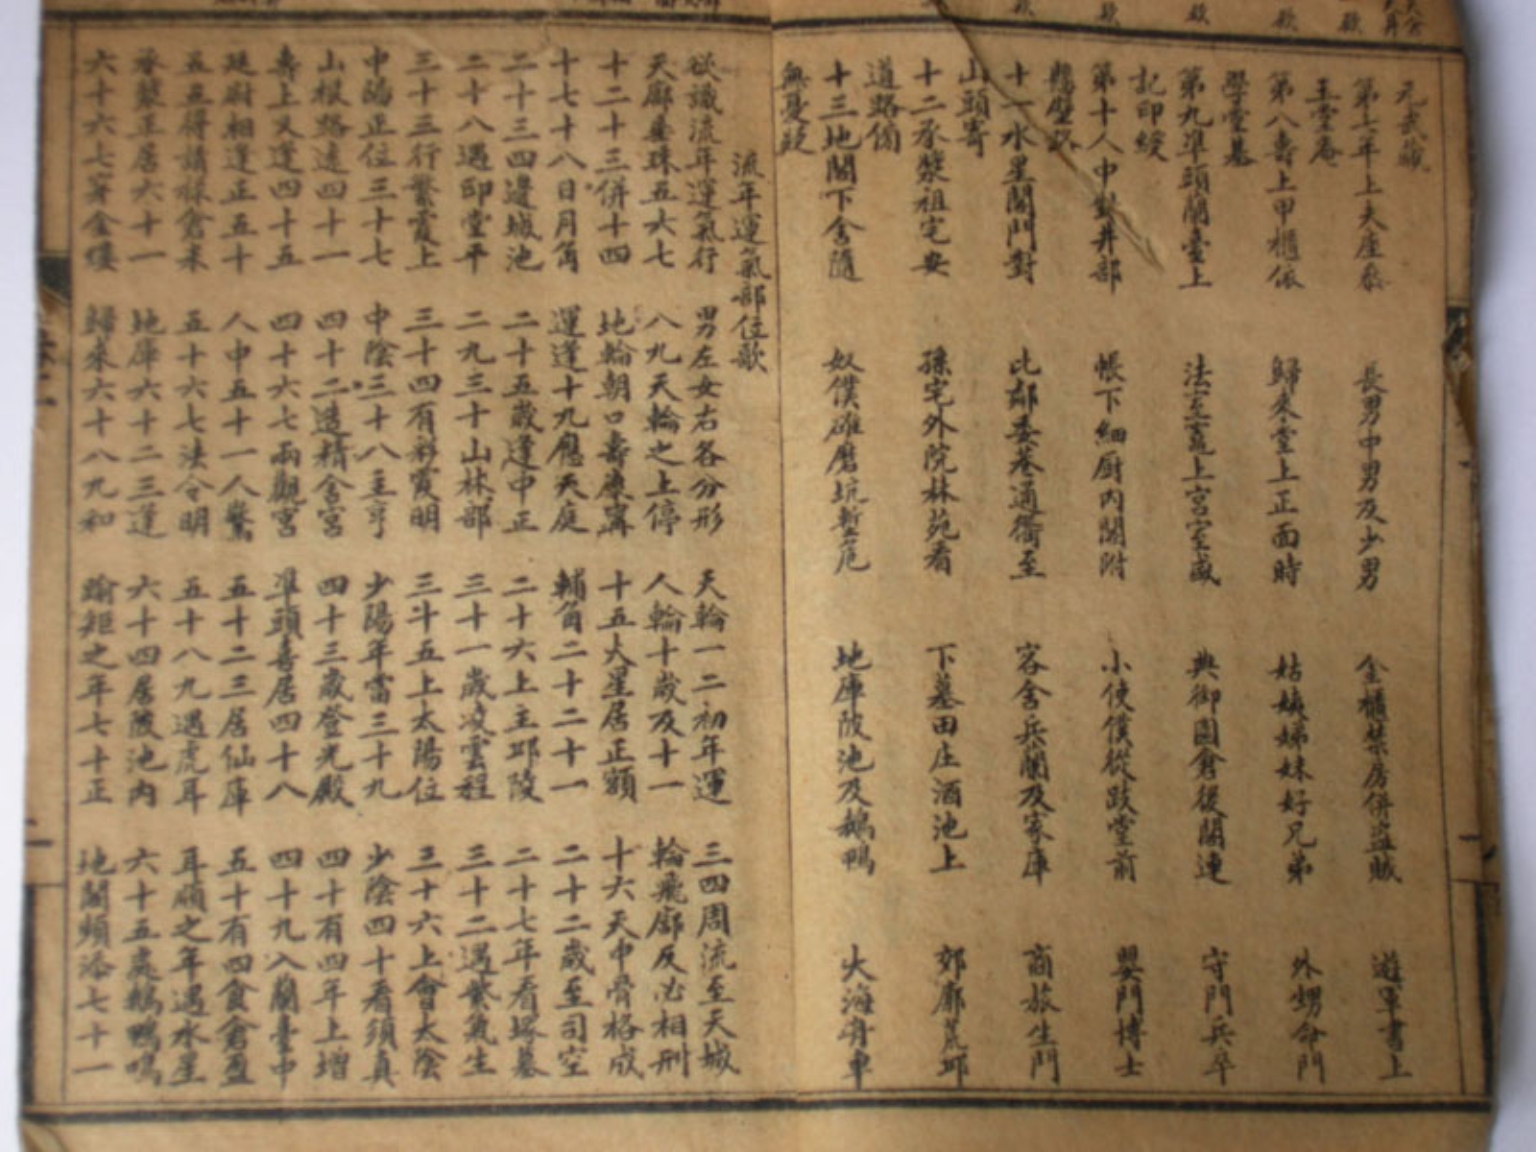 元武藏
第七年上大座參 長男中男及少男 金櫃禁房併盜賊 遊軍書上
玉堂庵
第八壽上甲櫃依 歸來堂上正面時 姑姨姊妹好兄弟 外甥命門
學堂基
第九準頭蘭臺上 法令竈上宮室盛 典御園倉後閣連 守門兵卒
記印綬
第十人中對井部 帳下細厨內閣附 小使僕從跂堂前 嬰門博士
懸壁路
十一水星閣門對 比鄰委巷通衢至 客舍兵蘭及家庫 商旅生門
山頭寄
十二承漿祖宅安 孫宅外院林苑看 下墓田庄酒池上 郊廓荒邱
道路傍
十三地閣下舍隨 奴僕碓磨坑塹危 地庫陂池及鵝鴨 大海舟車
無憂疑
流年運氣部位歌
欲識流年運氣行 男左女右各分形 天輪一二初年運 三四周流至天城
天廓垂珠五六七 八九天輪之上停 人輪十歲及十一 輪飛廓反必相刑
十二十三併十四 地輪朝口壽康寧 十五火星居正額 十六天中骨格成
十七十八日月角 運逢十九應天庭 輔角二十二十一 二十二歲至司空
二十三四邊城池 二十五歲逢中正 二十六上主邱陵 二十七年看塚墓
二十八遇印堂平 二九三十山林部 三十一歲凌雲程 三十二遇紫氣生
三十三行繁霞上 三十四有彩霞明 三十五上太陽位 三十六上會太陰
中陽正位三十七 中陰三十八主亨 少陽年當三十九 少陰四十看須真
山根路遠四十一 四十二造精舍宮 四十三歲登光殿 四十有四年上增
壽上又逢四十五 四十六七兩觀宮 準頭喜居四十八 四十九入蘭臺中
廷尉相逢正五十 人中五十一人驚 五十二三居仙庫 五十有四食倉盈
五五得請祿倉來 五十六七法令明 五十八九遇虎耳 耳順之年遇水星
承漿正居六十一 地庫六十二三逢 六十四居陂池內 六十五處鵝鴨鳴
六十六七穿金縷 歸來六十八九和 踰矩之年七十正 地閣頻添七十一